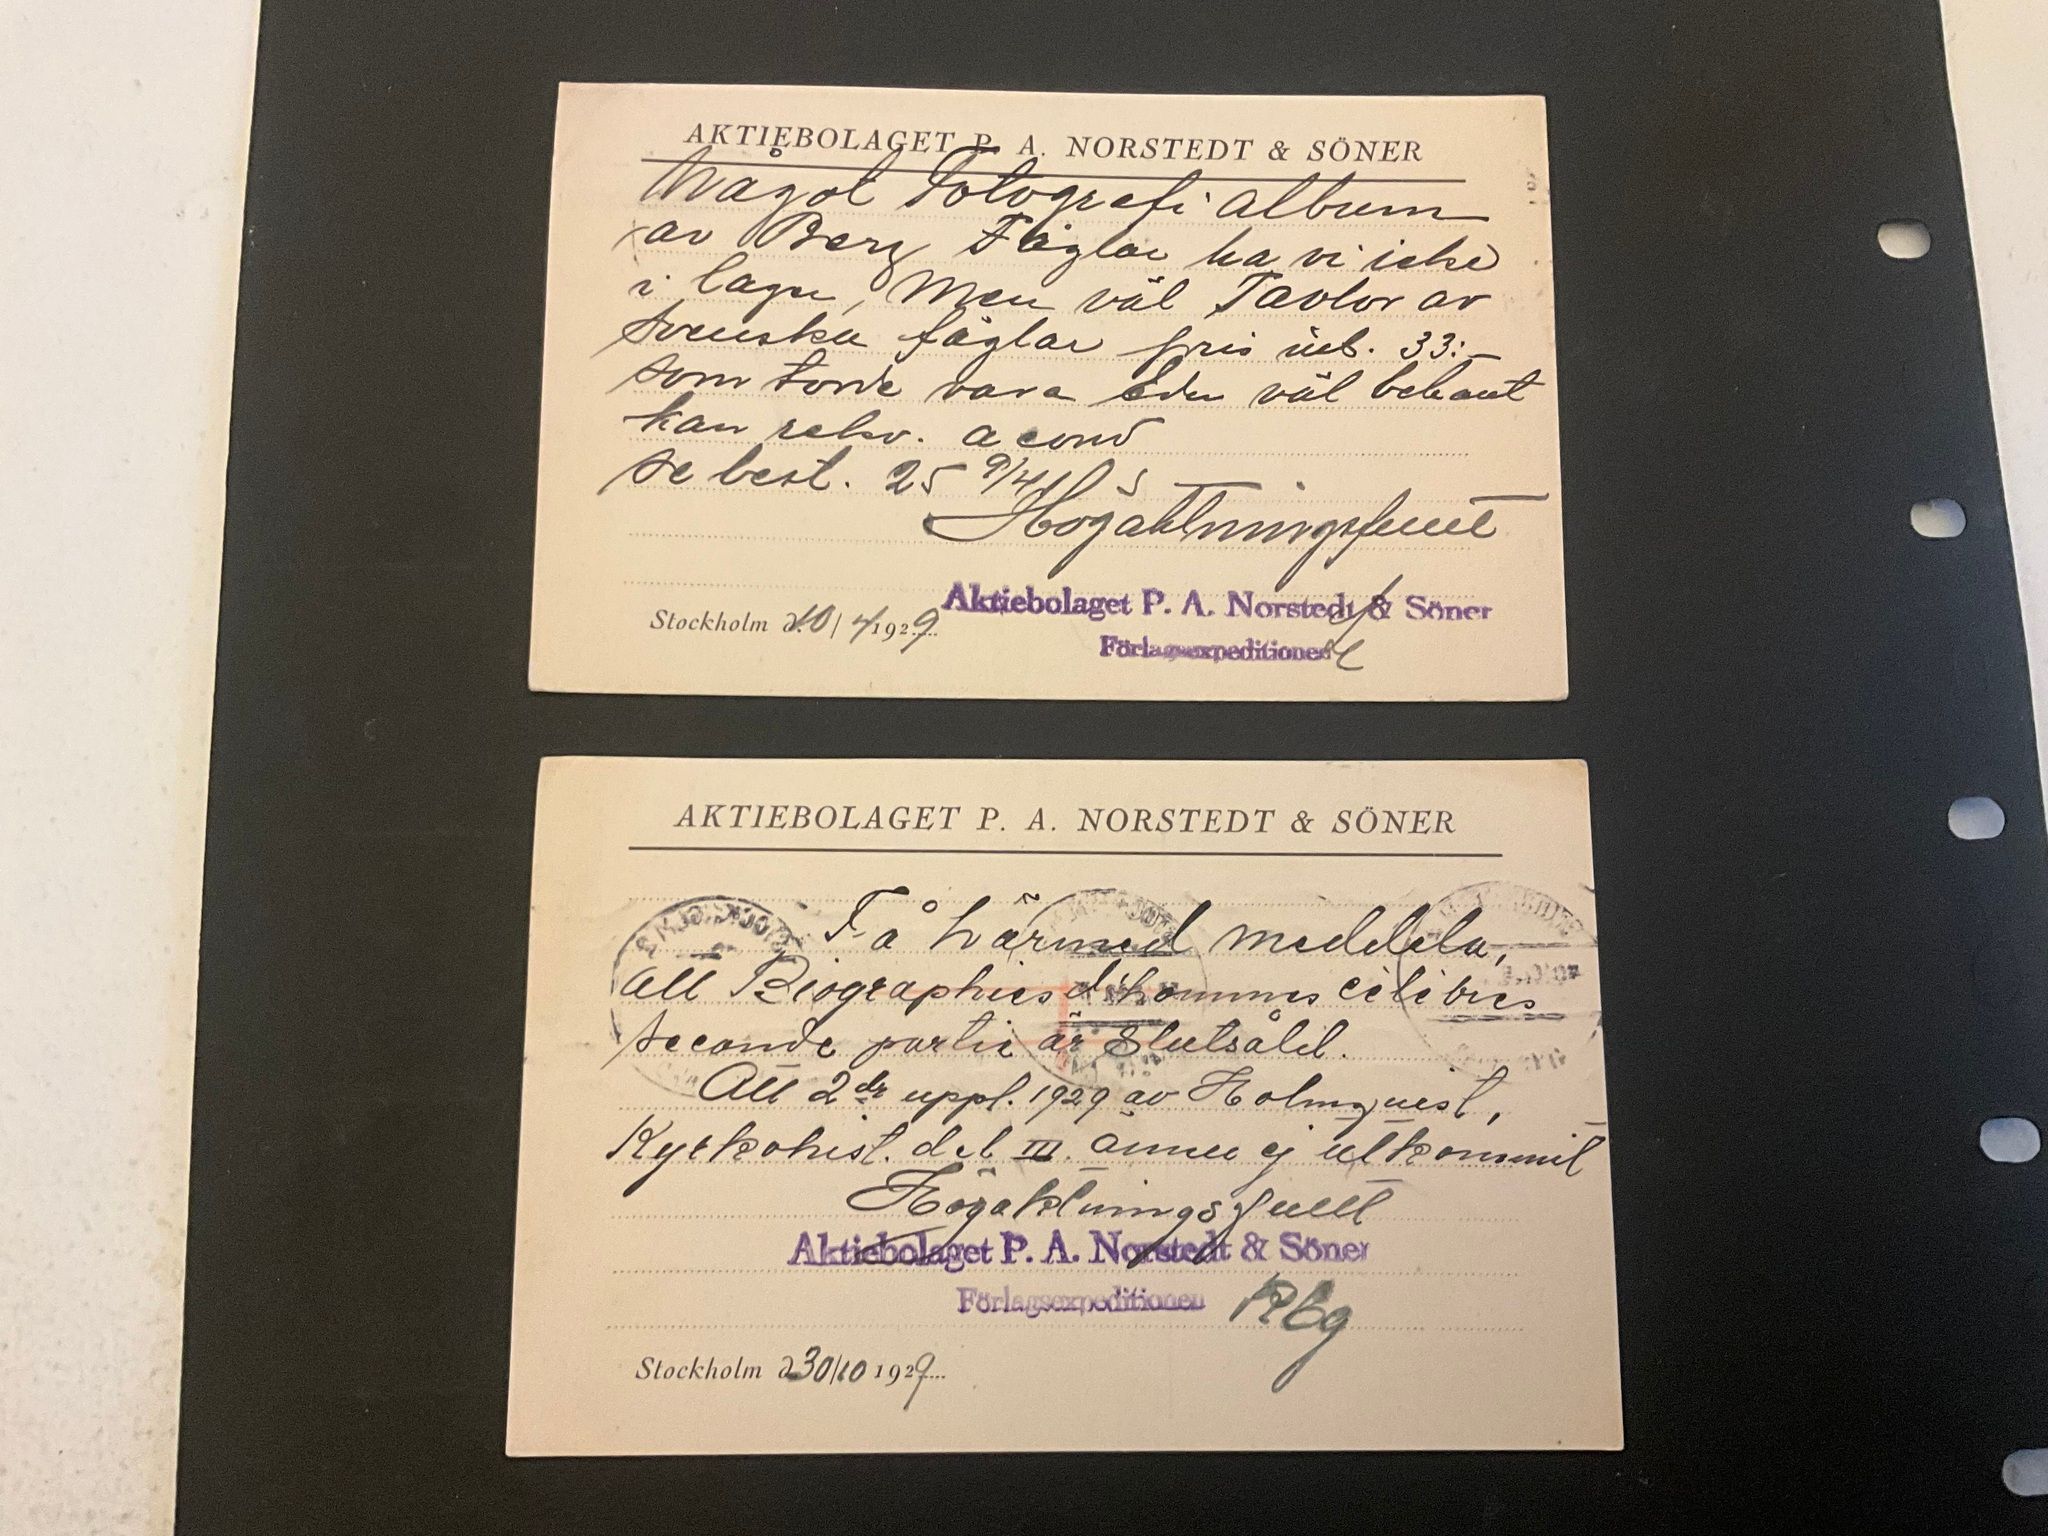 AKTIEBOLAGET P. A. NORSTEDT & SÖNER
Något Fotografi album
av Berg Fåglar ha vi icke
i lager, Men väl Tavlor av
svenska fåglar pris inb. 33:-
som torde vara Eder väl bekant
kan rekv. a cond
se best. 25 9/4
Högaktningsfullt
Aktiebolaget P. A. Norstedt & Söner
Förlagsexpeditionen
Stockholm d. 10/4 1929
AKTIEBOLAGET P. A. NORSTEDT & SÖNER
Få härmed meddela,
att Biographies d'hommes célèbres
seconde partie är slutsåld.
Att 2dr uppl. 1929 av Holmquist,
Kyrkohist. del III. ännu ej utkommit
Högaktningsfullt
Aktiebolaget P. A. Norstedt & Söner
Förlagsexpeditionen
Stockholm d. 30/10 1929